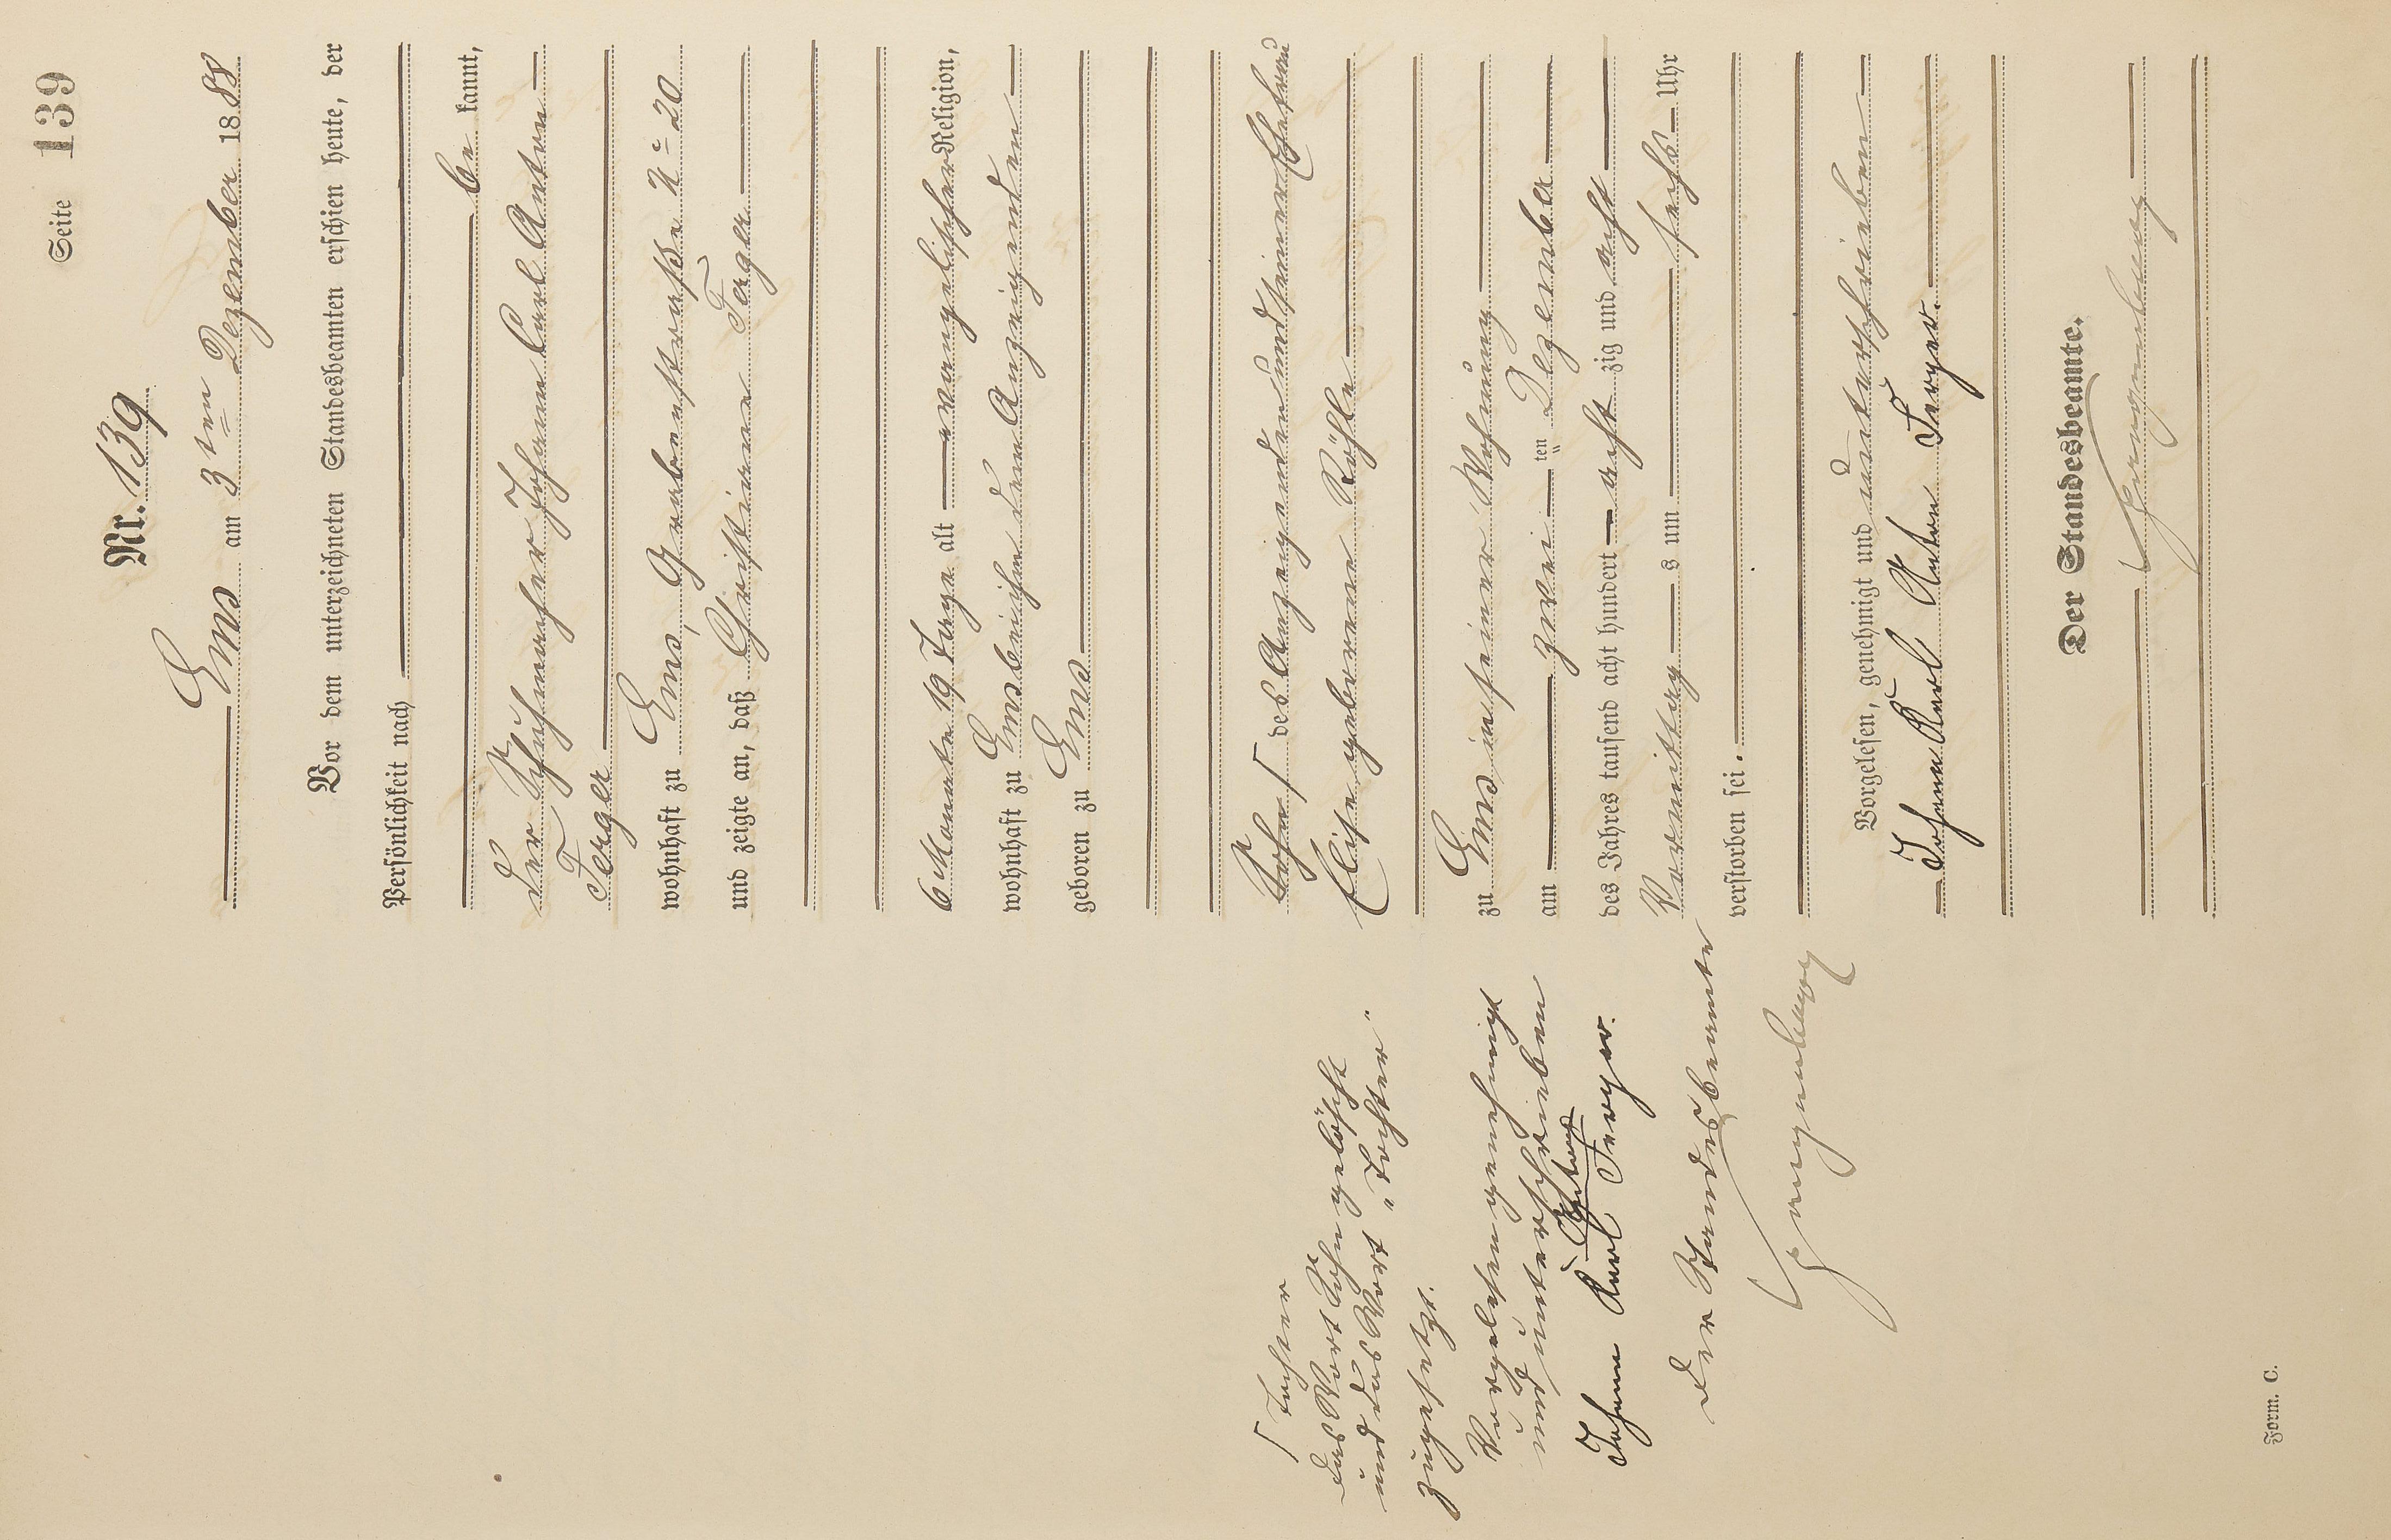 Seite 139
Nr. 139
Ems am 3ten Dezember 1888
Vor dem unterzeichneten Standesbeamten erschien heute, der
Persönlichkeit nach
be kannt,
der Schuhmacher Johann Carl Anton
Ferger
wohnhaft zu Ems, Grabenstraße No 20
und zeigte an, daß Christiane Ferger
6 Monate 19 Tage alt evangelischer Religion,
wohnhaft zu Ems bei ihm dem Anzeigenden
geboren zu Ems
Sohn ⌈ des Anzeigenden und seiner Ehefrau
Elise geborene Röhle
zu Ems in seiner Wohnung
am zwei ten Dezember
des Jahres tausend acht hundert acht zig und acht
Vormittag s um sechs Uhr
verstorben sei.
Vorgelesen, genehmigt und unterschrieben
Johann Karl Anton Ferger.
Der Standesbeamte.
⌈ Tochter
das Wort Sohn gelöscht
und das Wort „Tochter"
zugesetzt.
Vorgelesen genehmigt
und unterschrieben
Johann Karl Anton Ferger.
Der Standesbeamte
Form. C.